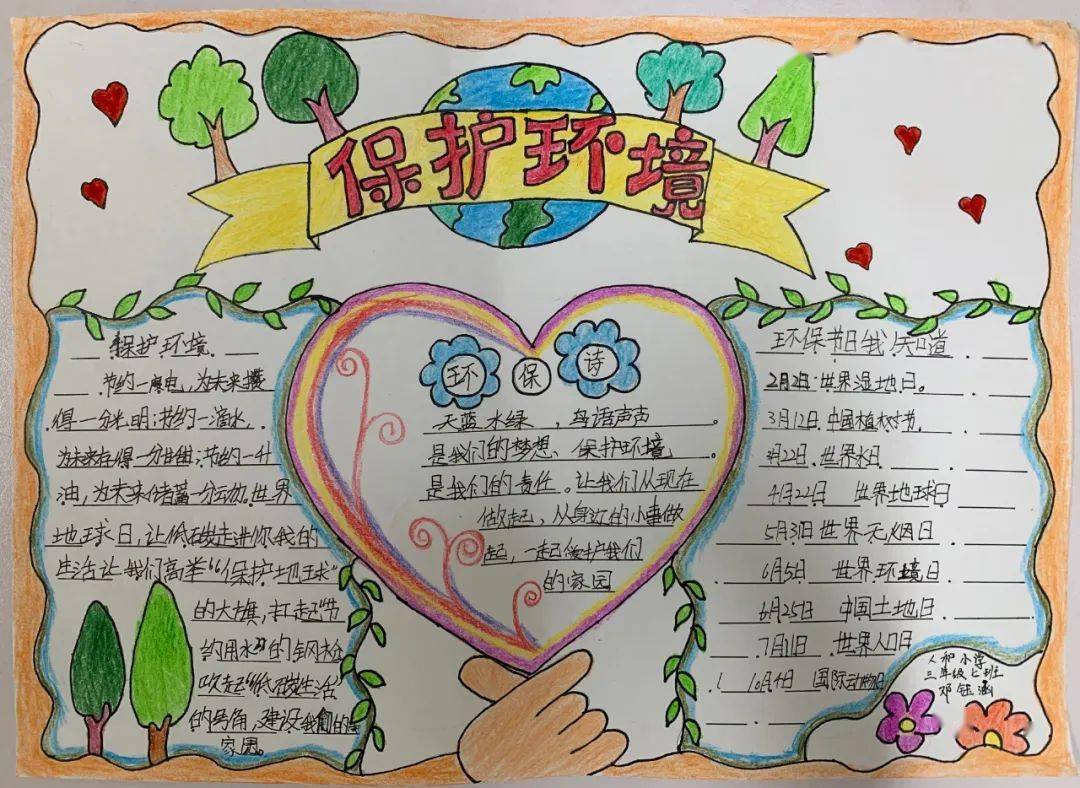 保护环境
保护环境
节约一度电,为未来攒
得一分光明;节约一滴水,
为未来存得一分甘甜;节约一升
油,为未来储蓄一分运动。世界
地球日,让低碳走进你我的
生活让我们高举“保护地球”
的大旗,扛起“节
约用水”的钢枪
吹起“低碳生活”
的号角,建设我们的
家园。
环保诗
天蓝水绿,鸟语声声。
是我们的梦想、保护环境,
是我们的责任。让我们从现在
做起、从身边的小事做
起,一起保护我们
的家园
环保节日我知道
2月2日:世界湿地日。
3月12日.中国植树节.
月22日.世界水日
4月22日 世界地球日
5月31日世界无烟日
6月5日 世界环境日
6月25日 中国土地日
7月11日.世界人口日
10月4日 国际动物日
人和小学
三年级七班
邓钰涵